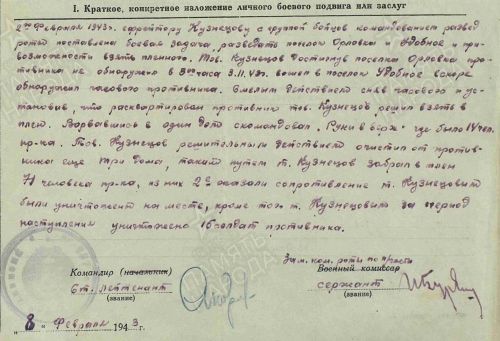 I. Краткое, конкретное изложение личного боевого подвига или заслуг
2го февраля 1943г. ефрейтору Кузнецову с группой бойцов командованием развед
роты поставлена боевая задача, разведать поселок Орловка и Удобное и при
возможности взять пленного. Тов. Кузнецов достигнув поселка Орловка про-
тивника не обнаружено в 3 часа 3.II.43г. вошел в поселок Удобное вскоре
обнаружил часового противника. Смелым действием сняв часового и ус-
тановив, что расквартирован противник тов. Кузнецов решил взять в
плен. Ворвавшись в один дом скомандовал "Руки в верх" где было 14 чел.
пр-ка. Тов. Кузнецов решительным действием очистил от против-
ника еще три дома, таким путем т. Кузнецов забрал в плен
71 человека пр-ка, из них 2е оказали сопротивление т. Кузнецовым
были уничтожены на месте, кроме того т. Кузнецовым за период
наступления уничтожено 16 солдат противника.
Зам. ком. роты по п/части
Командир (начальник)
Военный комиссар
Ст. лейтенант
сержант
(звание)
(звание)
"8" Февраля 1943 г.
ПАМЯТЬ